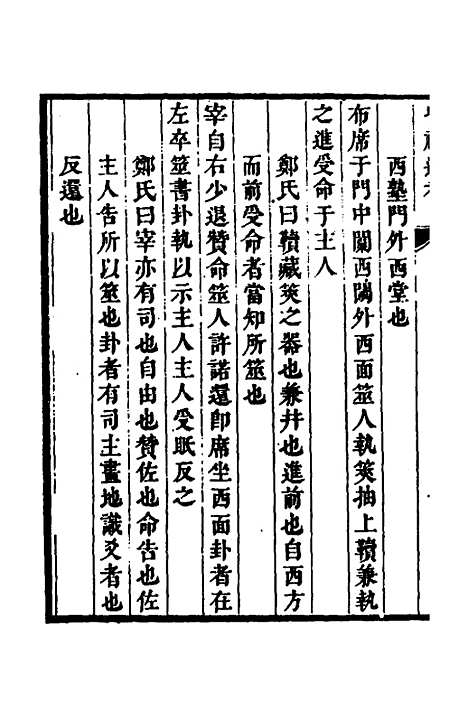 西塾門外西堂也
布席于門中闑西閾外西面筮人執筴抽上韇兼執
之進受命于主人
鄭氏曰韇藏筴之器也兼并也進前也自西方
而前受命者當知所筮也
宰自右少退贊命筮人許諾還即席坐西面卦者在
左卒筮書卦執以示主人主人受眂反之
鄭氏曰宰亦有司也自由也贊佐也命告也佐
主人告所以筮也卦者有司主畫地識爻者也
反還也